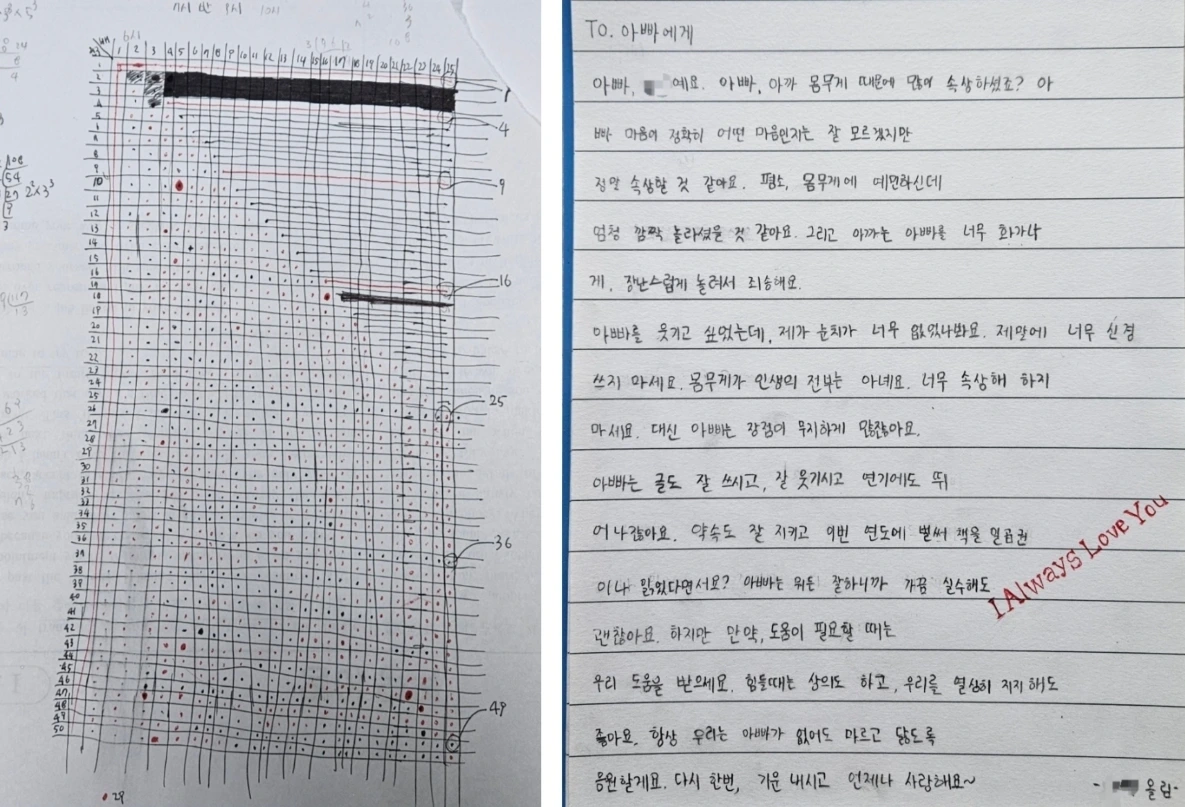 1 2 3 4 5 6 7 8 9 10 11 12 13 14 15 16 17 18 19 20 21 22 23 24 25
1
2
3
4
5
6
8
9
10
11
12
13
14
15
16
19
20
21
22
23
24
25
26
27
28
29
30
31
32
33
34
35
36
38
39
40
41
42
43
44
45
46
47
48
49
50
4
9
16
25
36
49
29
54
27 2²×3³
To. 아빠에게
아빠, 예요. 아빠, 아까 몸무게 때문에 많이 속상하셨죠? 아
빠 마음이 정확히 어떤 마음인지는 잘 모르겠지만
정말 속상할 것 같아요. 평소, 몸무게에 예민하신데
엄청 깜짝 놀라셨을 것 같아요. 그리고 아까는 아빠를 너무 화가나
게, 장난스럽게 놀려서 죄송해요.
아빠를 웃기고 싶었는데, 제가 눈치가 너무 없었나봐요. 제말에 너무 신경
쓰지 마세요. 몸무게가 인생의 전부는 아녜요. 너무 속상해 하지
마세요. 대신 아빠는 장점이 무지하게 많잖아요.
아빠는 글도 잘 쓰시고, 잘 웃기시고 연기에도 뛰
어나잖아요. 약속도 잘 지키고 이번 연도에 벌써 책을 일곱권
이나 읽었다면서요? 아빠는 뭐든 잘하니까 가끔 실수해도
괜찮아요. 하지만 만약, 도움이 필요할 때는
우리 도움을 받으세요. 힘들때는 상의도 하고, 우리를 열심히 지지해도
좋아요. 항상 우리는 아빠가 없어도 마르고 닳도록
응원할게요. 다시 한번, 기운 내시고 언제나 사랑해요~
- 올림-
I Always Love You